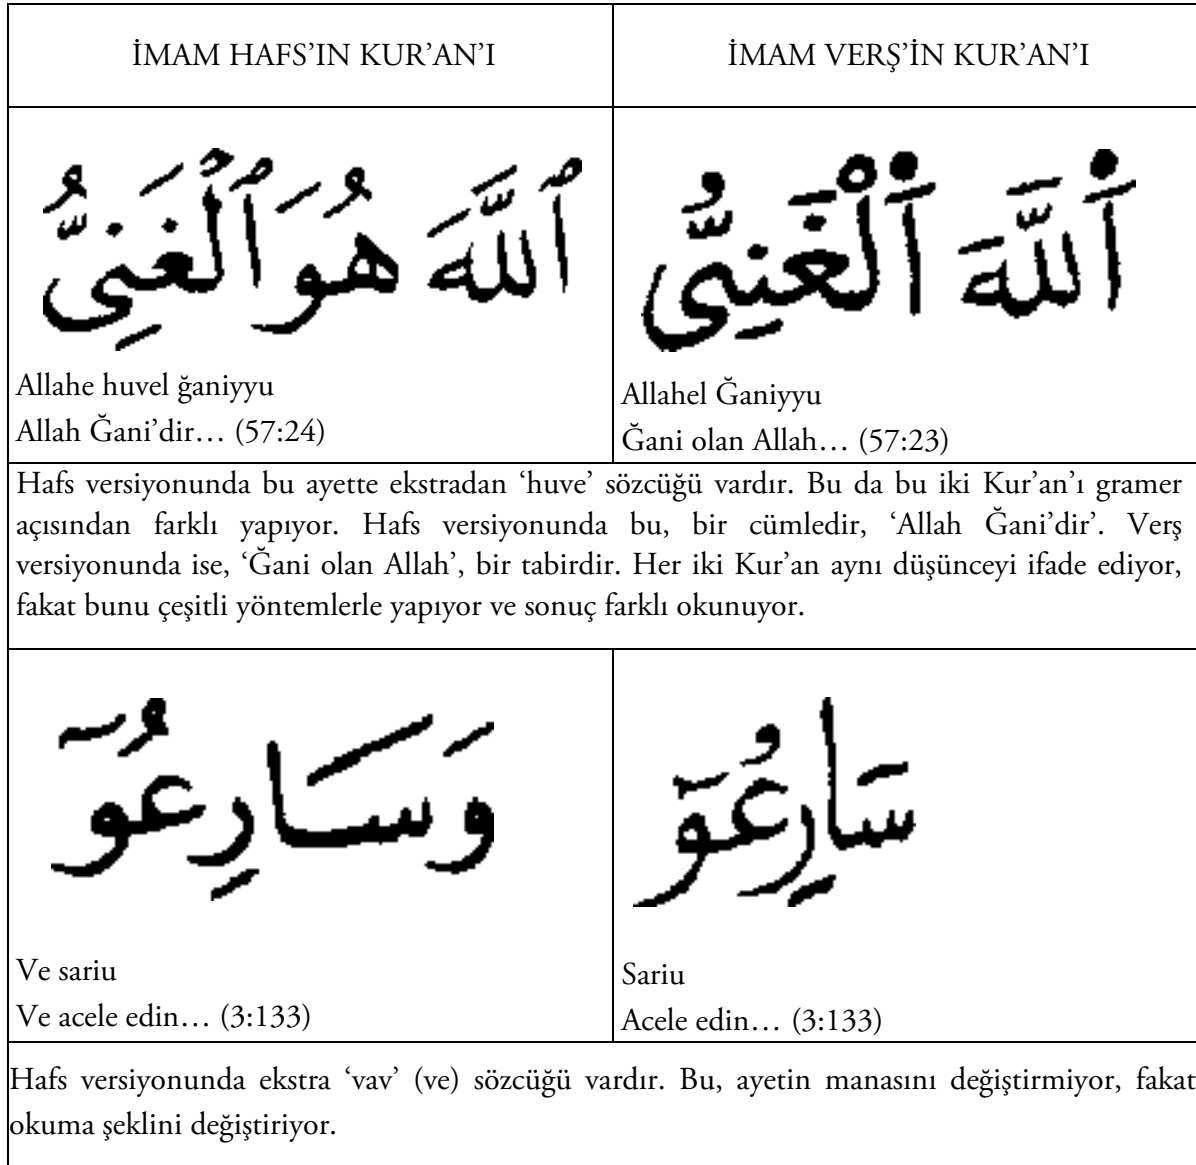 İMAM HAFS’IN KUR’AN’I
İMAM VERŞ’İN KUR’AN’I
ٱللَّهَ هُوَ ٱلْغَنِىُّ
Allahe huvel ğaniyyu
Allah Ğani’dir… (57:24)
اَ۬للَّهَ اَ۬لْغَنِىُّ
Allahel Ğaniyyu
Ğani olan Allah… (57:23)
Hafs versiyonunda bu ayette ekstradan ‘huve’ sözcüğü vardır. Bu da bu iki Kur’an’ı gramer
açısından farklı yapıyor. Hafs versiyonunda bu, bir cümledir, ‘Allah Ğani’dir’. Verş
versiyonunda ise, ‘Ğani olan Allah’, bir tabirdir. Her iki Kur’an aynı düşünceyi ifade ediyor,
fakat bunu çeşitli yöntemlerle yapıyor ve sonuç farklı okunuyor.
وَسَارِعُوٓ
Ve sariu
Ve acele edin… (3:133)
سَارِعُوٓ
Sariu
Acele edin… (3:133)
Hafs versiyonunda ekstra ‘vav’ (ve) sözcüğü vardır. Bu, ayetin manasını değiştirmiyor, fakat
okuma şeklini değiştiriyor.